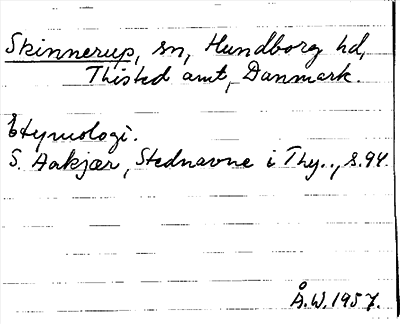 Skinnerup, sn, Hundborg hd,
Thisted amt, Danmark.
Etymologi.
S. Aakjær, Stednavne i Thy.., s.94.
Å.W.1957.